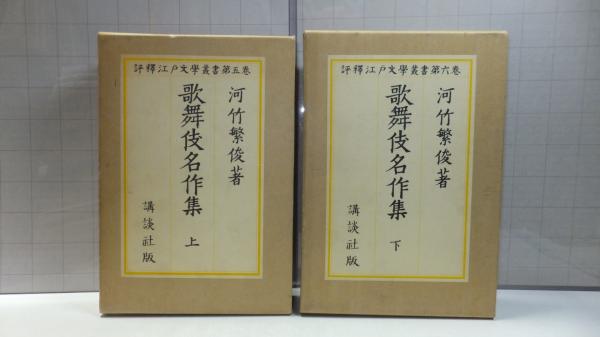 評釋江戸文學叢書第五巻
河竹繁俊著
歌舞伎名作集 上
講談社版
評釋江戸文學叢書第六巻
河竹繁俊著
歌舞伎名作集 下
講談社版